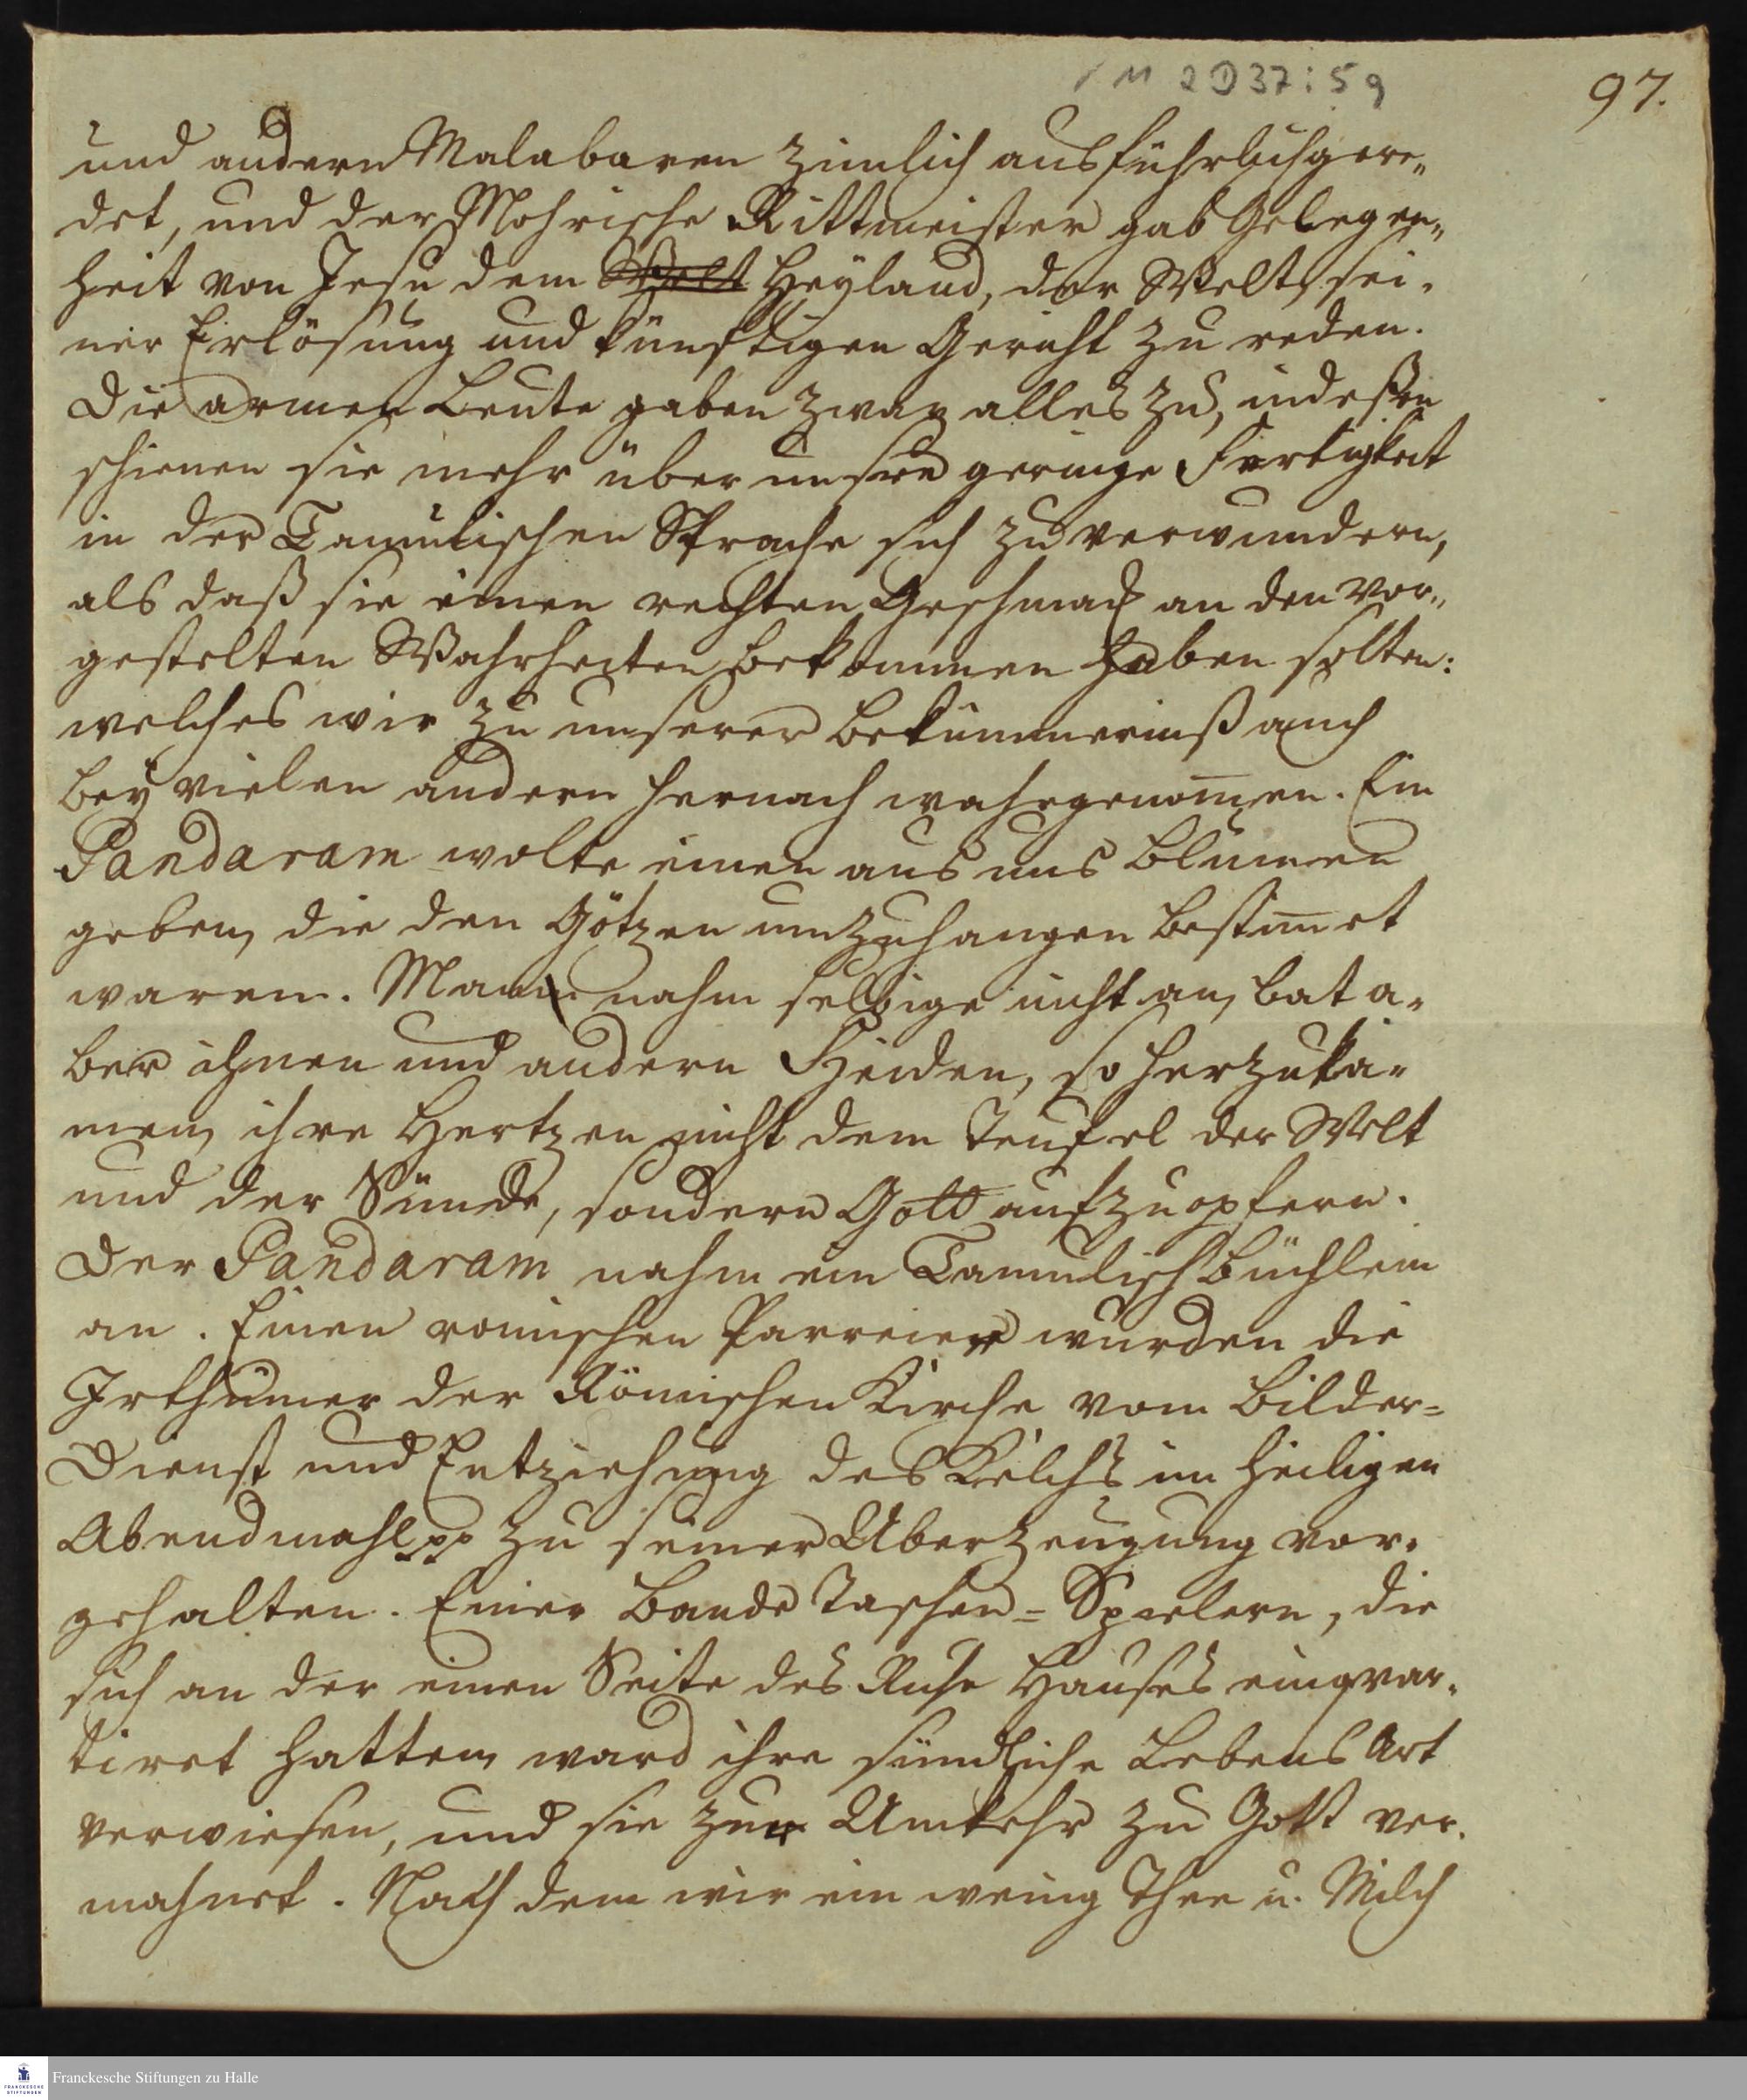 M 2 D 37 : 5 9
97.
und andern Malabaren zimlich ausführlich gere„
det, und der Mohrische Rittmeister gab Gelegen„
heit von Jesu dem Welt Heyland, der Welt, sei-
ner Erlösung und künftigen Gericht zu reden.
Die armen Leute gaben zwar alles zu, indeßen
schienen sie mehr über unsere geringe Fertigkeit
in der Tamulischen Sprache sich zu verwundern,
als daß sie einen rechten Geschmack an den vor„
gestelten Wahrheiten bekommen haben solten:
welches wir zu unserer Bekümmerniß auch
bey vielen andern hernach wahrgenom̅en. Ein
Pandaram wolte einen aus uns Blumen
geben, die den Götzen umzuhangen bestim̅et
waren. Man nahm selbige nicht an, bat a-
ber ihnen und andern Heiden, so herzuka-
men, ihre Hertzen nicht dem Teufel der Welt
und der Sünde, sondern Gott aufzuopfern.
Der Pandaram nahm ein Tamulisch Büchlein
an. Einen romischen Parreier wurden die
Irthümer der Römischen Kirche vom Bilder=
Dienst und Entziehung des Kelchs im heiligen
Abendmahl pp zu seiner Uberzeugung vor-
gehalten. Einer Bande Taschen=Spielern, die
sich an der einen Seite des Ruhe Hauses einqvar-
tiret hatten, ward ihre sündliche Lebens Art
verwiesen, und sie zur Umkehr zu Gott ver-
mahnet. Nach dem wir ein wenig Thee u. Milch
Franckesche Stiftungen zu Halle
FRANCKESCHE STIFTUNGEN